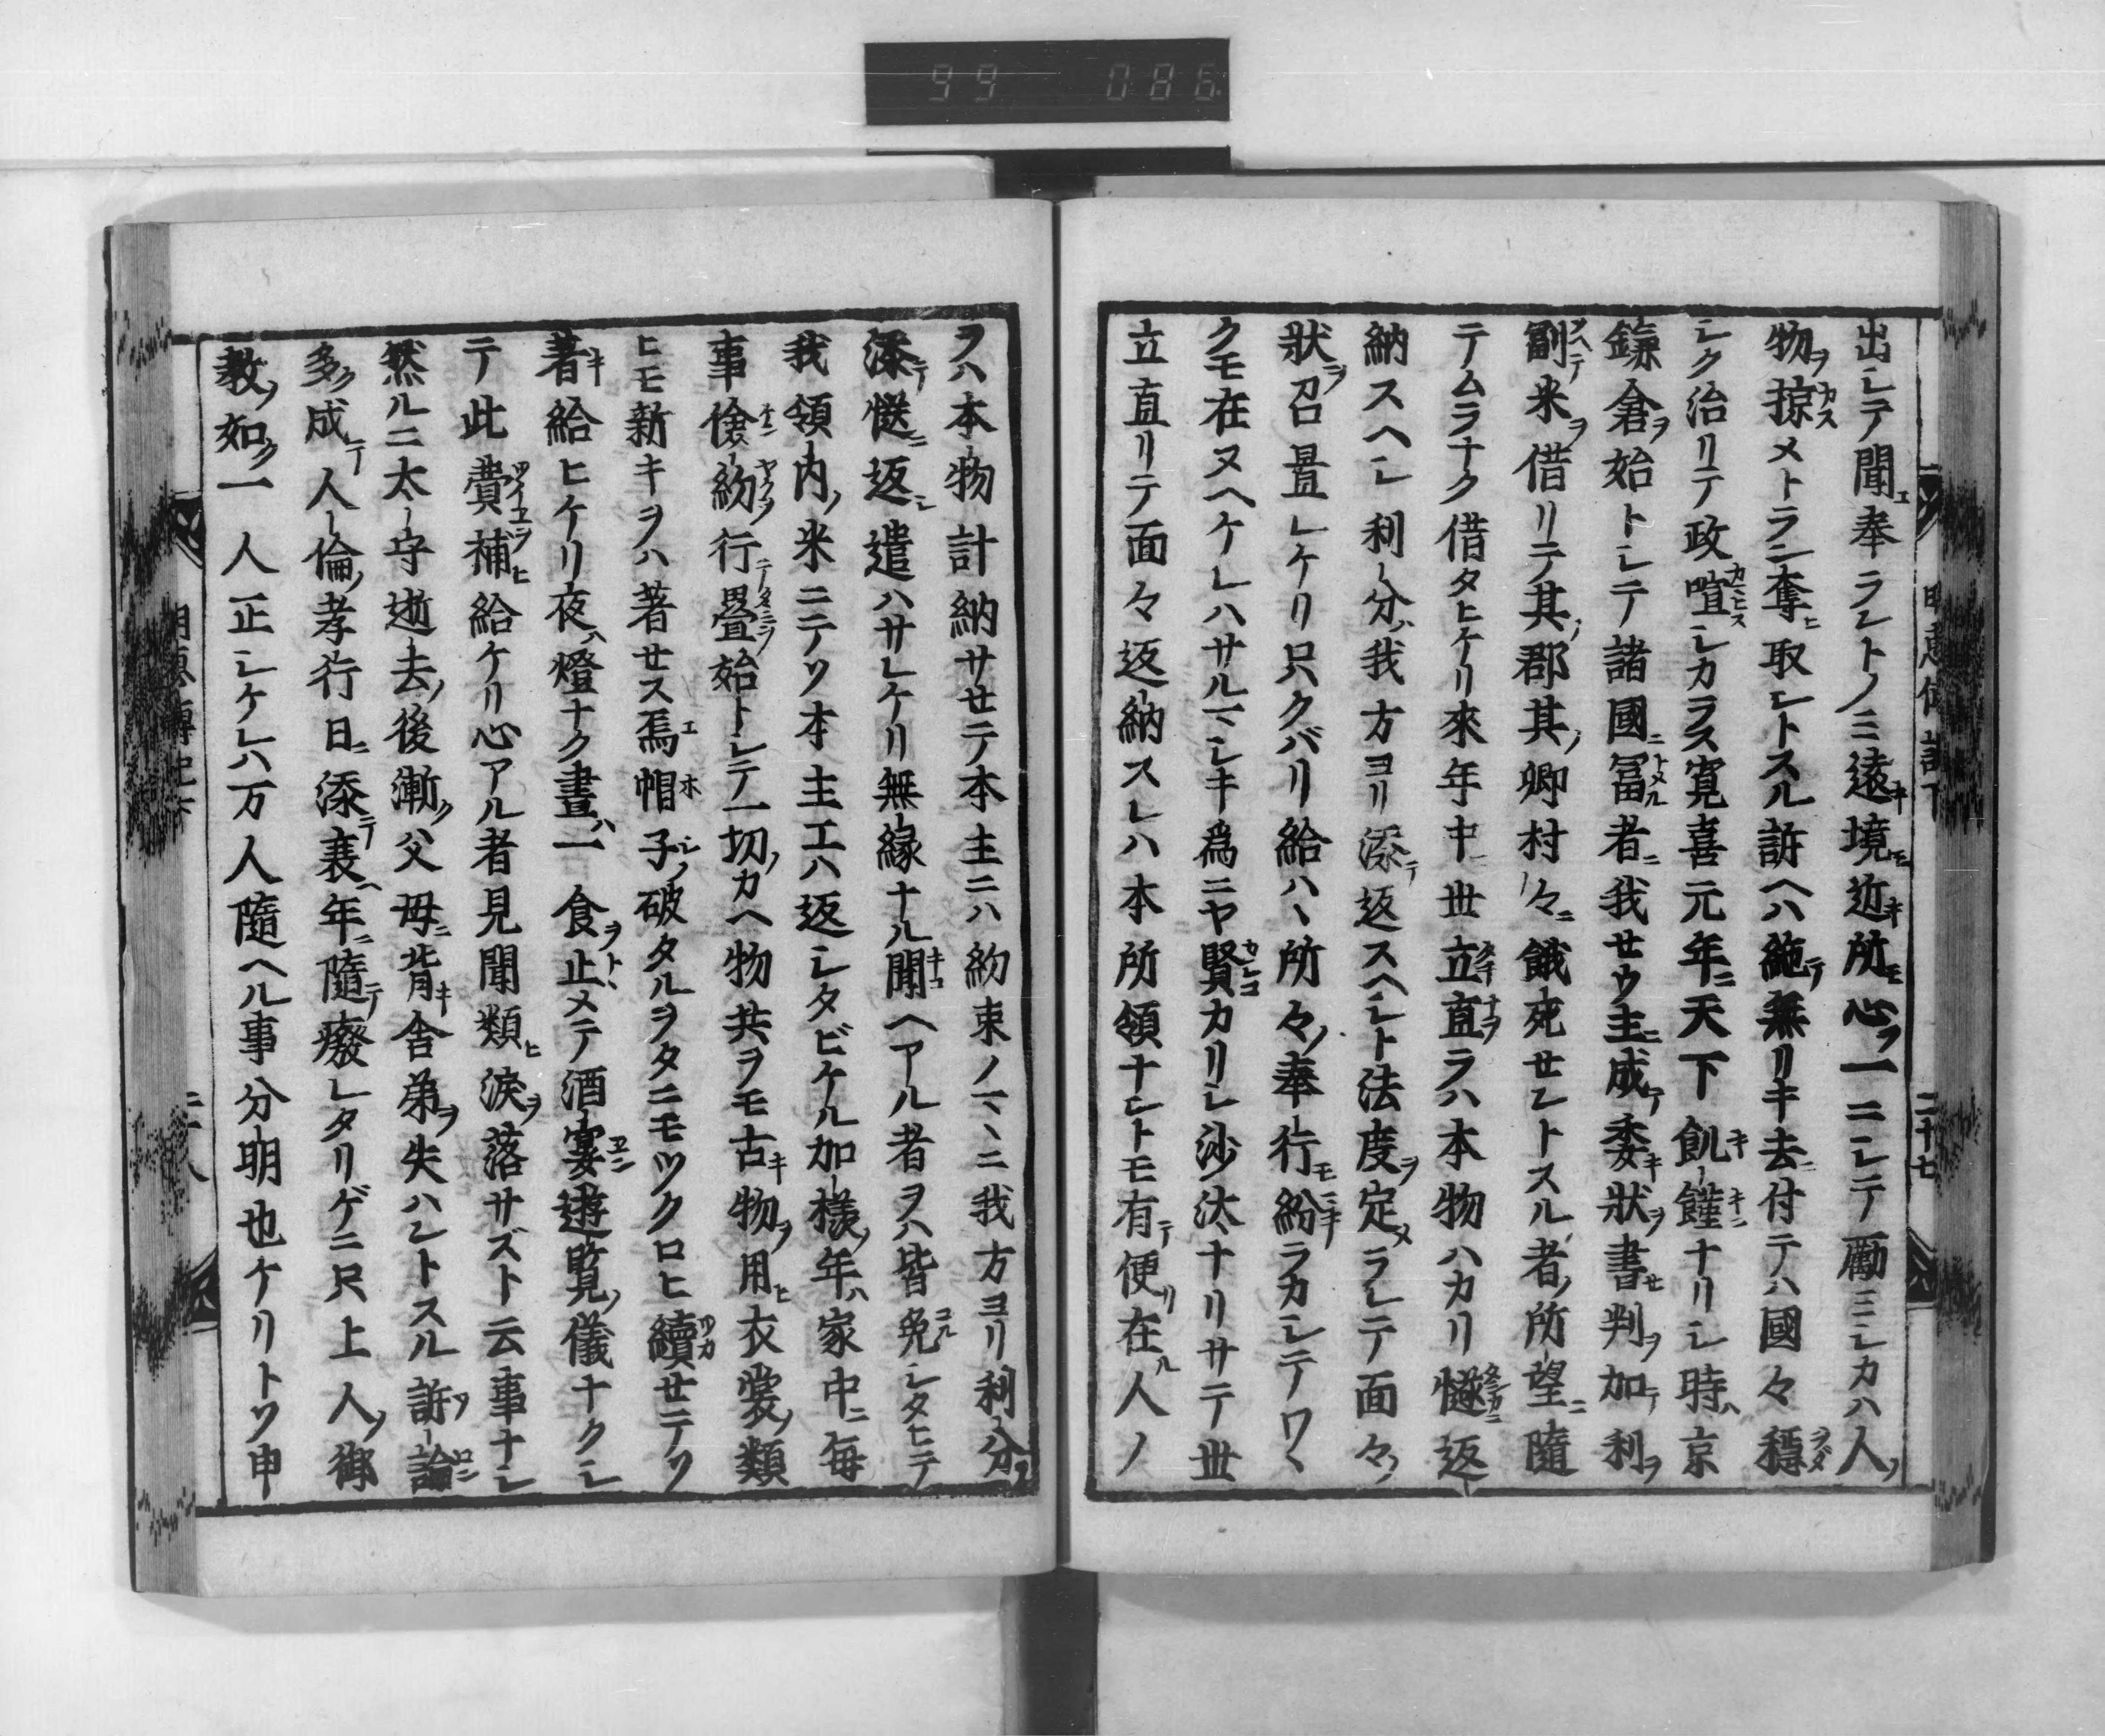 99 086
明恵傳記下
二十七
出シテ聞エ奉ラントノミ遠キ境モ近キ所モ心ヲ一ニシテ勵ミシカハ人ノ
物ヲ掠メトラン奪ヒ取ントスル訴ヘハ絶テ無リキ去ニ付テハ國々穩
シク治リテ政喧シカラス寛喜元年ニ天下飢饉ナリシ時ハ京
鎌倉ヲ始トシテ諸國ニ冨ル者ニ我セウ主ニ成テ委キ狀ヲ書セ判ヲ加テ利ヲ
副テ米ヲ借リテ其ノ郡其ノ郷村々ニ餓死セントスル者ノ所望ニ隨
テムラナク借タヒケリ來年中ニ世立直ラハ本物ハカリ慥ニ返
納スヘシ利分ハ我方ヨリ添テ返スヘシト法度ヲ定メラレテ面々ノ
狀ヲ召置レケリ只クバリ給ハヽ所々ノ奉行モ紛ラカシテワヽ
クモ在ヌヘケレハサルヽシキ爲ニヤ賢カリシ沙汰ナリサテ世
立直リテ面々返納スレハ本所領ナントモ有テ便リ在ル人ノ
ヲハ本物計納サセテ本主ニハ約束ノヽニ我方ヨリ利分ヲ
添テ慥ニ返シ遣ハサレケリ無縁ナル聞ヘアル者ヲハ皆免シタヒテ
我領内ノ米ニテソ本主エハ返シタビケル加樣ノ年ハ家中ニ毎
事儉約ヲ行テ畳ヲ始トシテ一切ノカヘ物共ヲモ古キ物ヲ用ヒ衣裳ノ類
ヒモ新キヲハ著セス烏帽子ノ破タルヲタニモツクロヒ續セテソ
著給ヒケリ夜ハ燈ナク晝ハ一食ヲ止メテ酒宴遊覧ノ儀ナクシ
テ此費ヲ補ヒ給ケリ心アル者見聞類ヒ涙ヲ落サズト云事ナシ
然ルニ太守逝去ノ後漸ク父母ニ背キ舎弟ヲ失ハントスル訴論
多ク成テ人倫ノ孝行日ニ添テ衰ヘ年ニ隨テ癈レタリゲニ只上人ノ御
教ノ如ク一人正シケレハ万人隨ヘル事分明也ケリトソ申
明恵傳記下
二十八